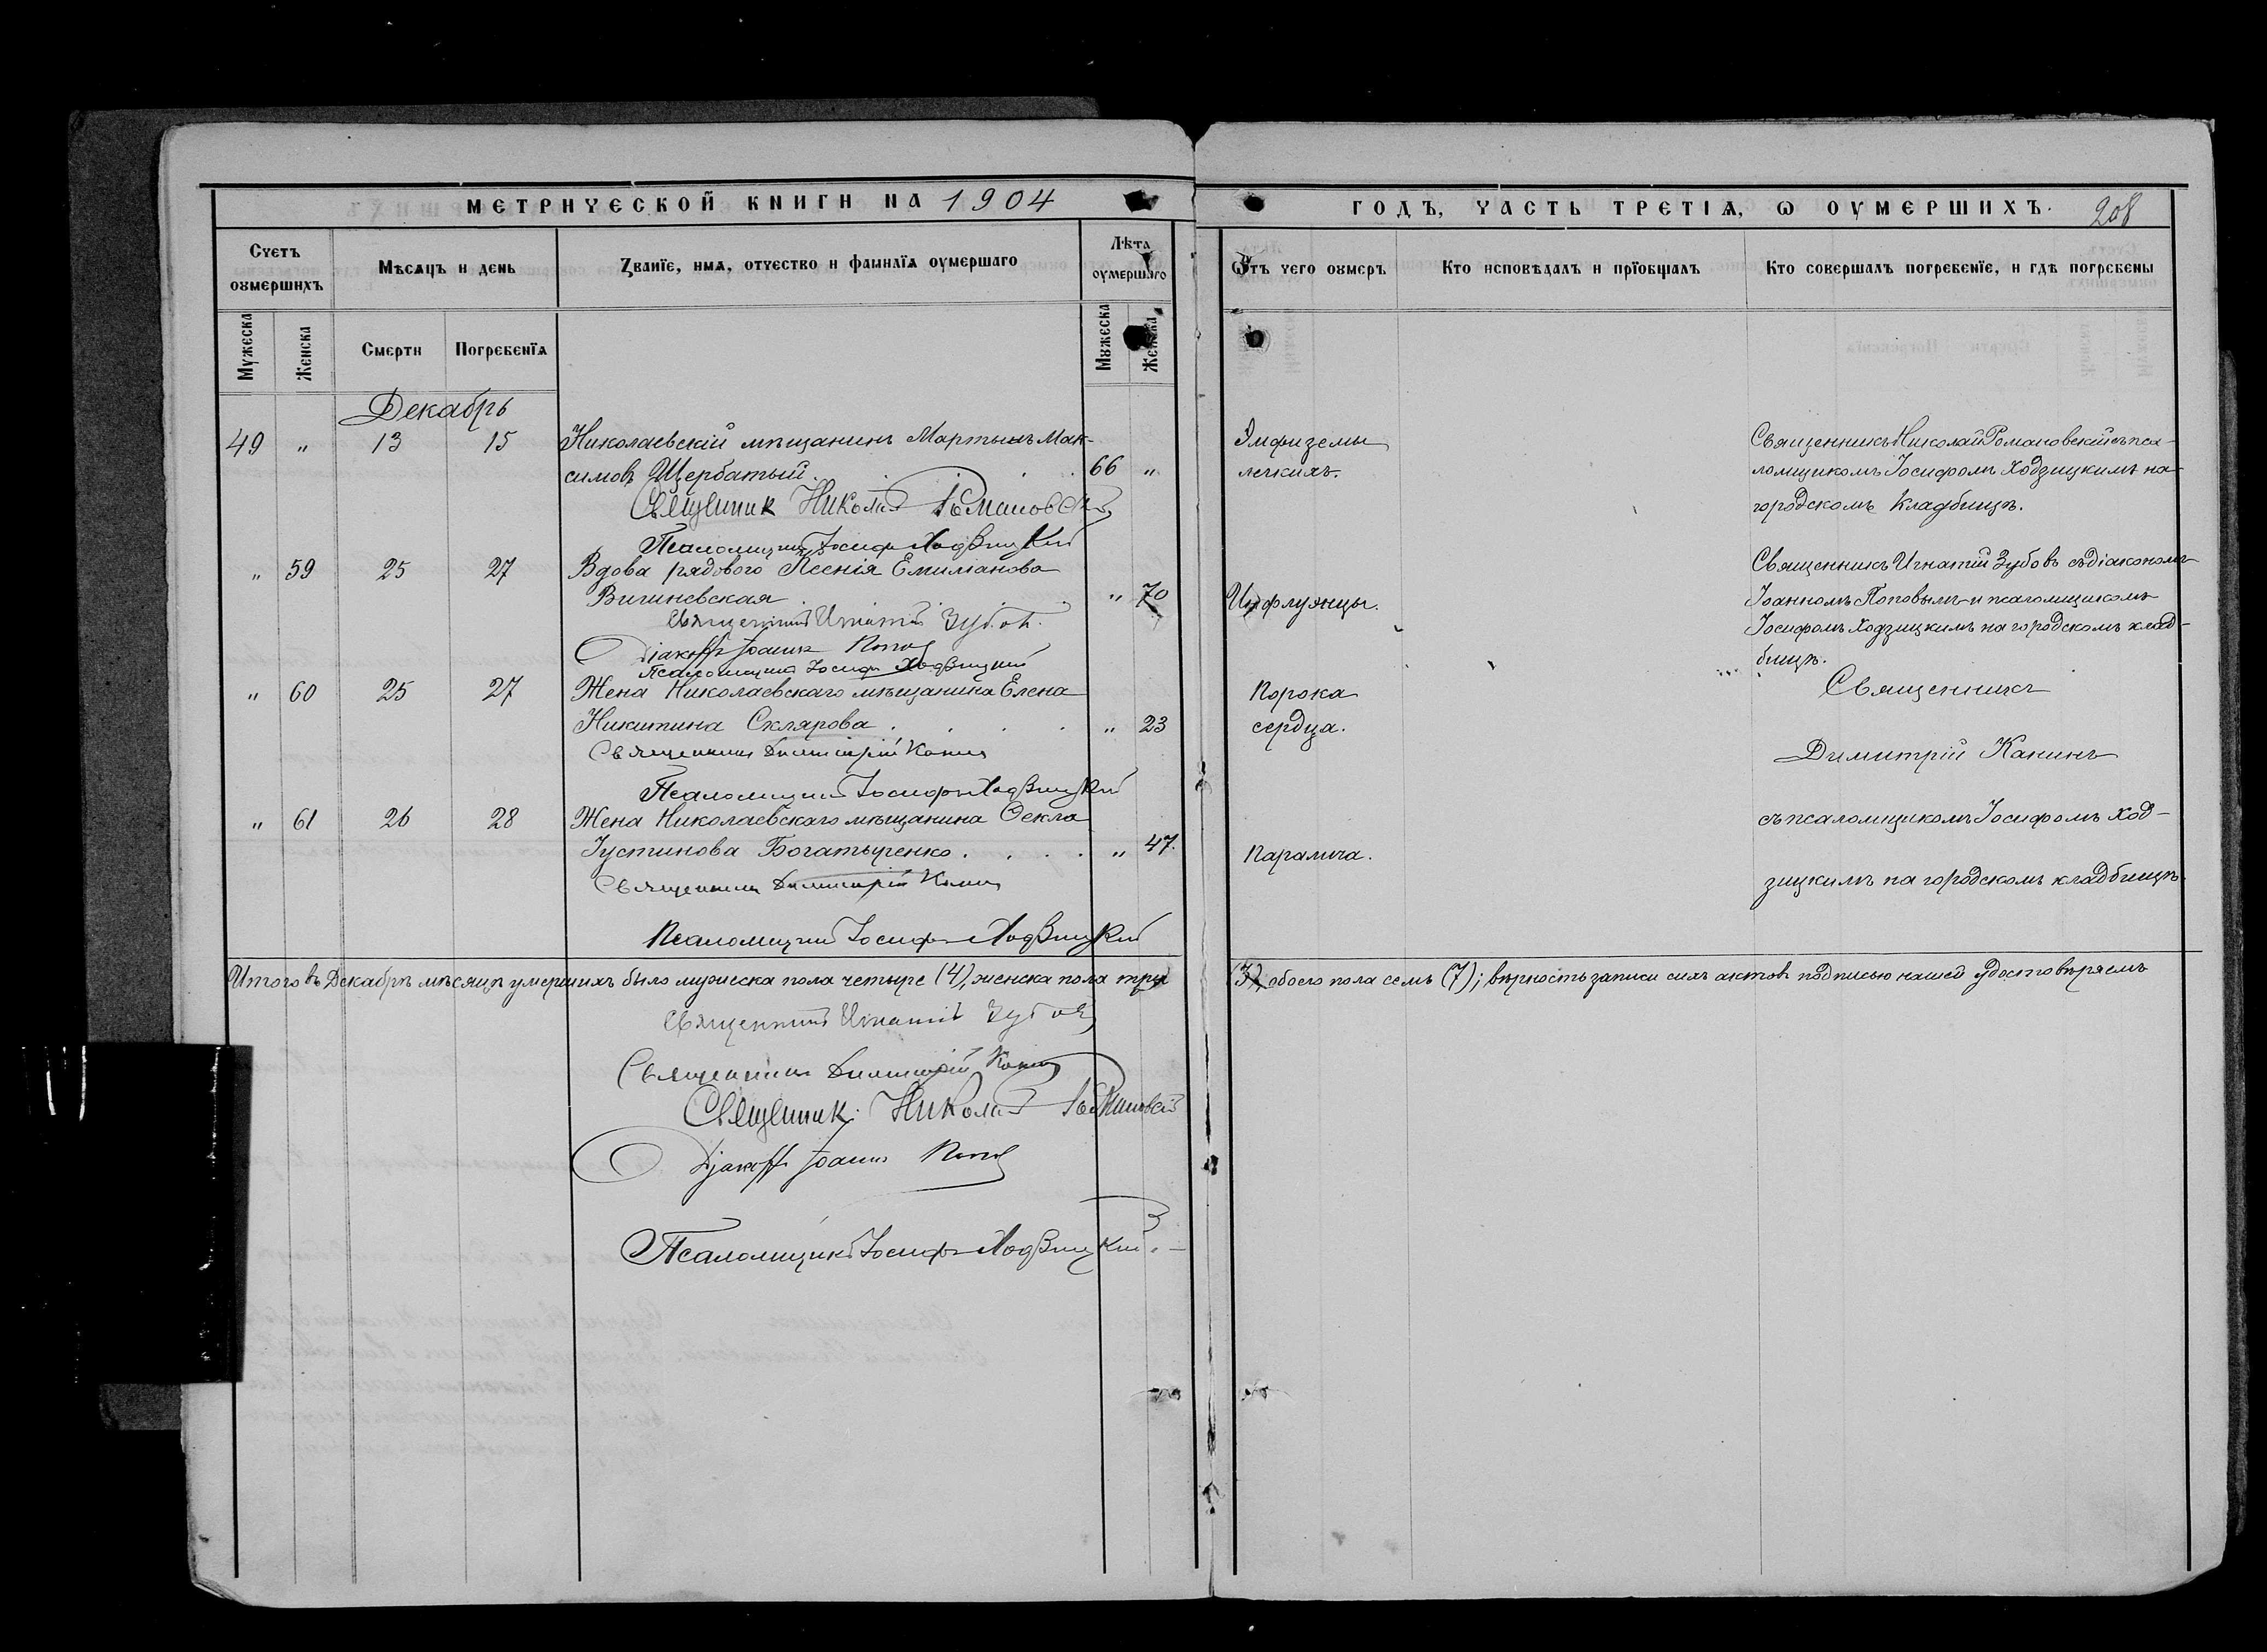 МЕТРИЧЕСКОЙ КНИГИ НА 1904
ГОДЪ, ЧАСТЬ ТРЕТІѦ, Ѡ ОУМЕРШИХЪ.
208
Счетъ оумершихъ
Мѣсѧцъ и день
Званїе, имѧ, отчество и фамилїѧ оумершаго
Лѣта оумершаго
Ѿтъ чего оумеръ
Кто исповѣдалъ и прїобщалъ
Кто совершалъ погребенїе, и гдѣ погребены
Мужеска
Женска
Смерти
Погребенїѧ
Мужеска
Женска
Декабрь
49 " 13 15 Николаевскій мѣщанинъ Мартынъ Мак-
симовъ Щербатый. 66 "
Священник Николай Романовскій
Псаломщикъ Іосифъ Ходзицкій
Эмфиземы
легкихъ.
Священникъ Николай Романовскій съ пса-
ломщикомъ Іосифомъ Ходзицкимъ на
городскомъ кладбищѣ.
" 59 25 27 Вдова рядового Ксенія Емиліанова
Вигиневская " 70
Священникъ Игнатій Зубовъ.
Діаконъ Іоаннъ Поповъ
Псаломщикъ Іосифъ Ходзицкій
Инфлуэнцы.
Священникъ Игнатій Зубовъ съ діакономъ
Іоанномъ Поповымъ и псаломщикомъ
Іосифомъ Ходзицкимъ на городскомъ клад-
бищѣ.
" 60 25 27 Жена Николаевскаго мѣщанина Елена
Никитина Склярова " 23
Священникъ Димитрій Канинъ
Псаломщикъ Іосифъ Ходзицкій
Порока
сердца.
Священникъ
Димитрій Канинъ
" 61 26 28 Жена Николаевскаго мѣщанина Ѳекла
Іустинова Богатыренко " 47.
Священникъ Димитрій Канинъ
Псаломщикъ Іосифъ Ходзицкій
Паралича.
съ псаломщикомъ Іосифомъ Ход-
зицкимъ на городскомъ кладбищѣ.
Итого въ Декабрѣ мѣсяцѣ умершихъ было мужеска пола четыре (4), женска пола три (3), обоего пола семь (7); вѣрность записи сихъ актовъ подписью нашей удостовѣряемъ
Священникъ Игнатій Зубовъ
Священникъ Димитрій Канинъ
Священник Николай Романовскій
Діаконъ Іоаннъ Поповъ
Псаломщикъ Іосифъ Ходзицкій.